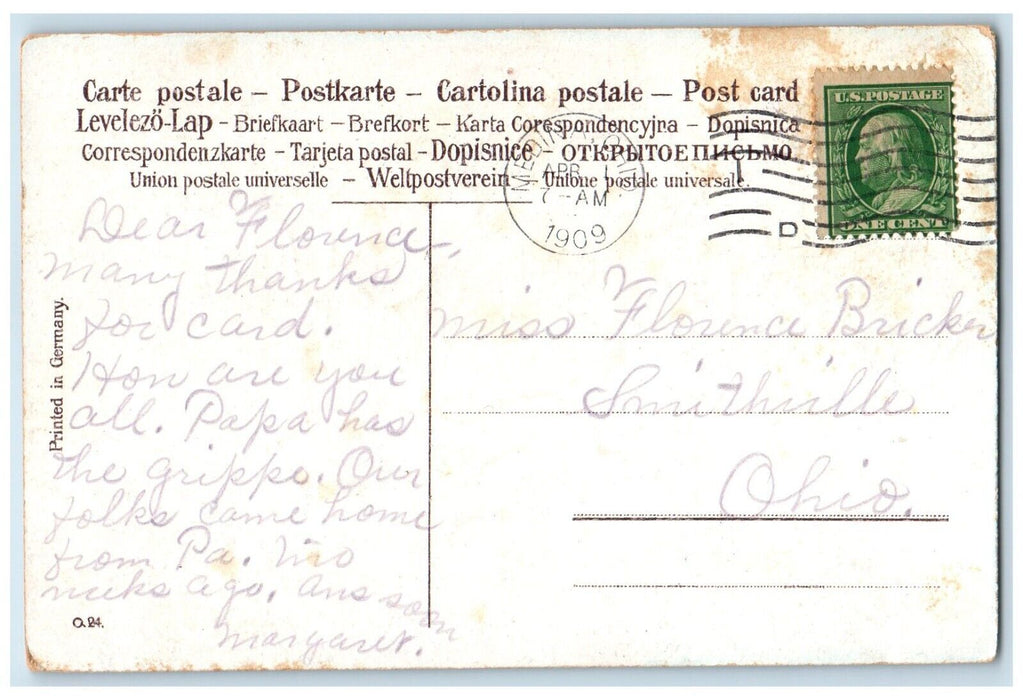 Carte postale – Postkarte – Cartolina postale – Post card
Levelező-Lap - Briefkaart – Brefkort – Karta Corespondencyjna – Dopisnica
Correspondenzkarte – Tarjeta postal – Dopisnice – ОТКРЫТОЕ ПИСЬМО
Union postale universelle – Weltpostverein – Unione postale universale.
U.S. POSTAGE
ONE CENT
APR
7–AM
1909
D
Dear Florence,
Many thanks
for card.
How are you
all. Papa has
the grippe. Our
folks came home
from Pa. two
weeks ago. Ans soon
Margaret.
Miss Florence Bricker
Smithville
Ohio.
Printed in Germany.
O.24.